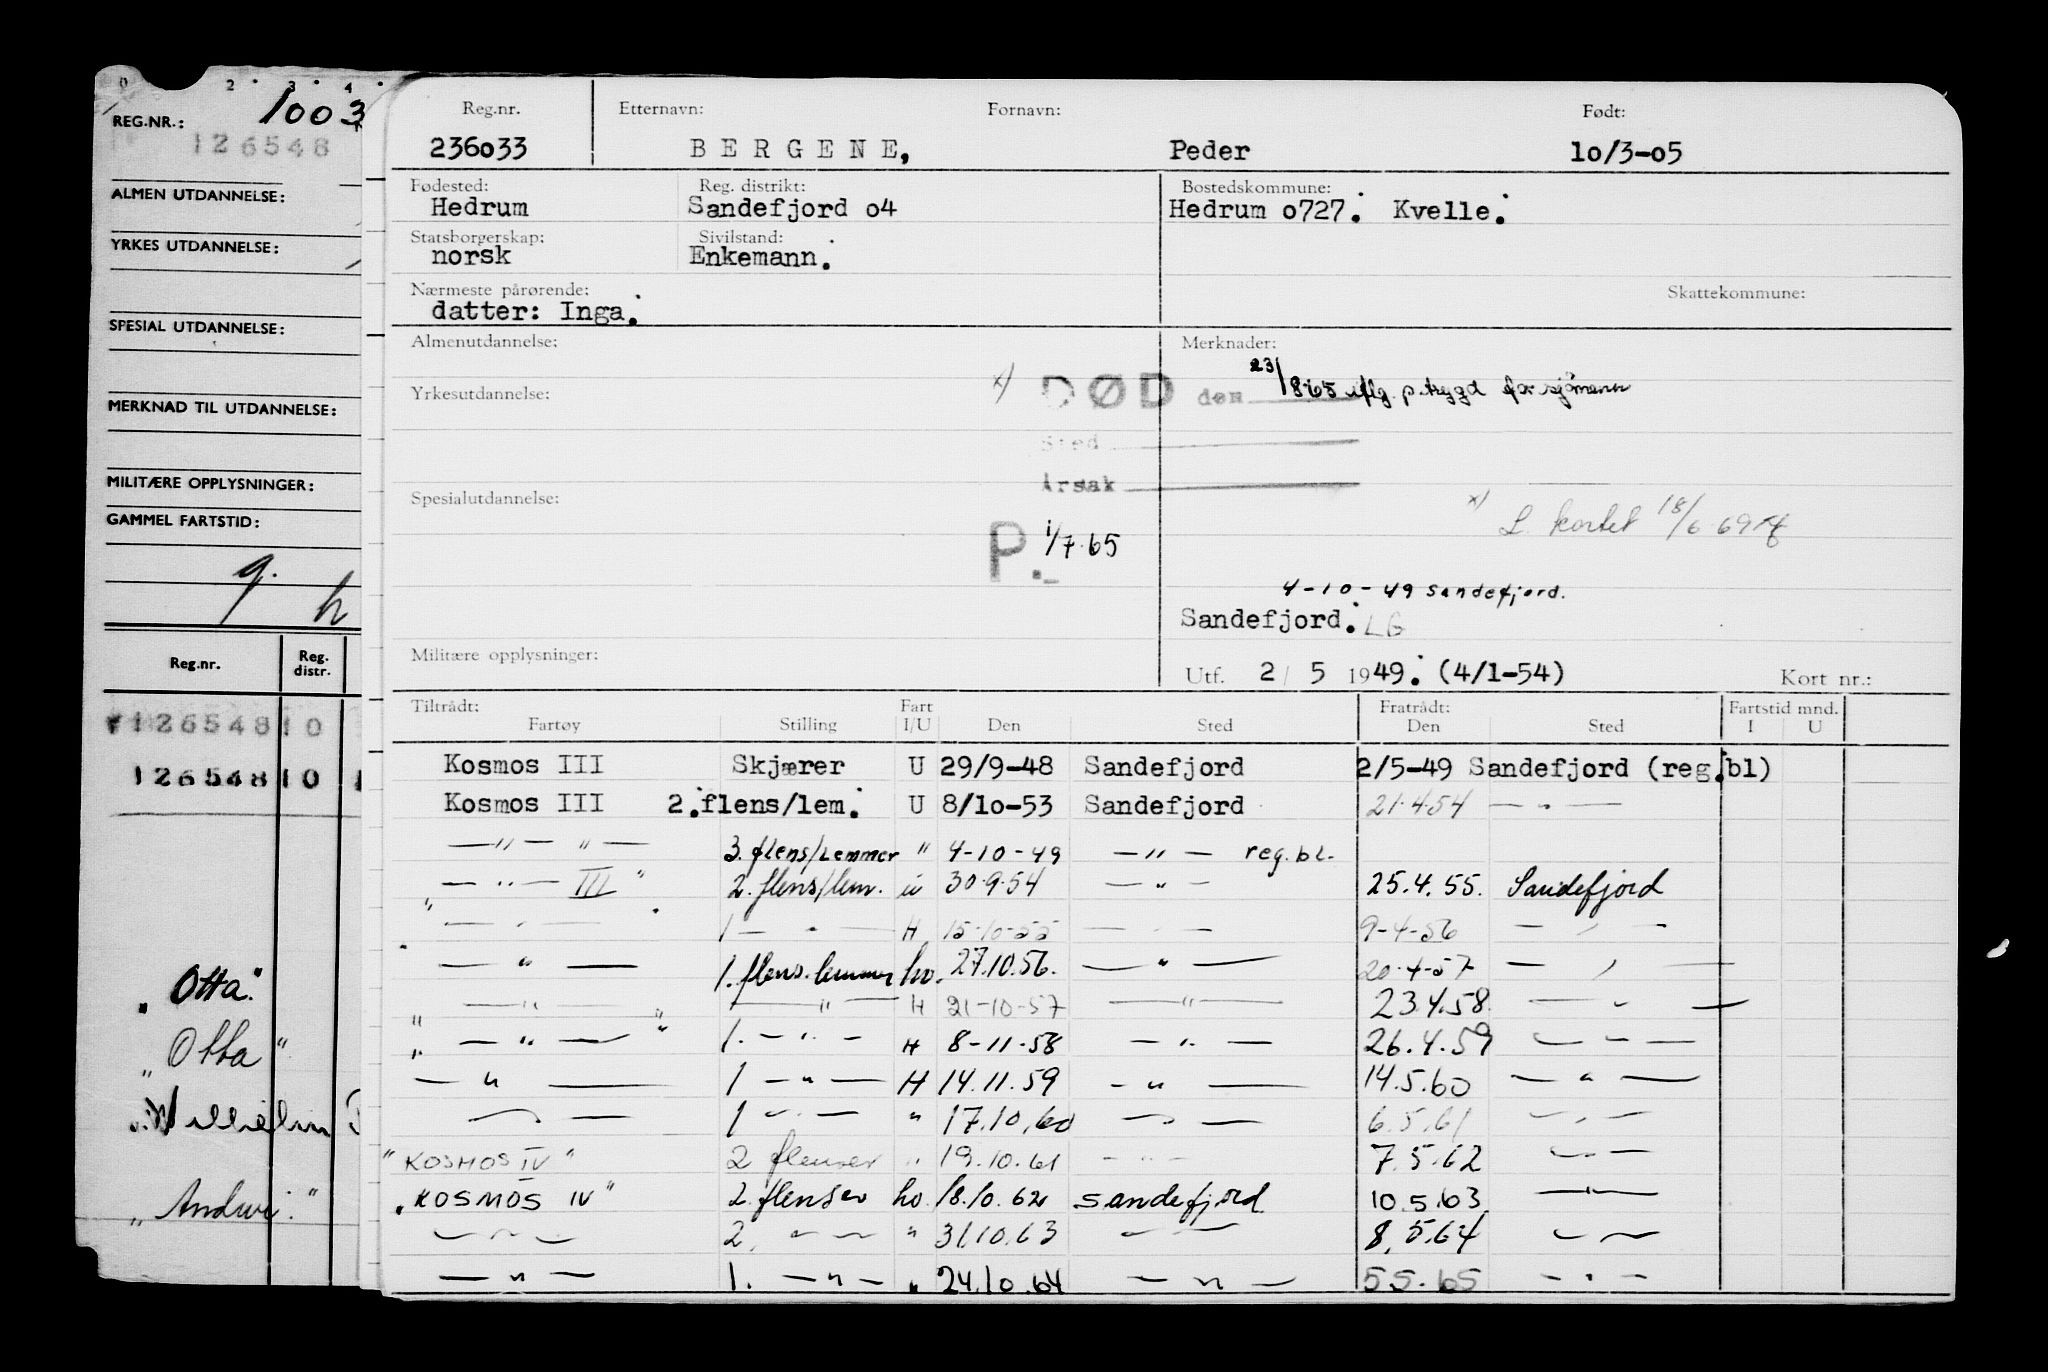 0 2 3 4
REG.NR.: 1003
126548
ALMEN UTDANNELSE:
YRKES UTDANNELSE:
SPESIAL UTDANNELSE:
MERKNAD TIL UTDANNELSE:
MILITÆRE OPPLYSNINGER:
GAMMEL FARTSTID:
Reg.nr. Reg. distr.
126548 10
126548 10 1
„Otta"
„Otta"
„Andwi."
Reg.nr. Etternavn: Fornavn: Født:
236o33 B E R G E N E, Peder lo/3-o5
Fødested: Reg. distrikt: Bostedskommune:
Hedrum Sandefjord o4 Hedrum o727. Kvelle.
Statsborgerskap: Sivilstand:
norsk Enkemann.
Nærmeste pårørende: Skattekommune:
datter: Inga.
Almenutdannelse: Merknader:
Yrkesutdannelse: x) DØD den 23/8.65 iflg. p.trygd for sjømenn
Sted
Årsak
Spesialutdannelse: x) L. kortet 18/6.69
P. 1/7.65
4-10-49 Sandefjord.
Sandefjord. LG
Militære opplysninger: Utf. 2/ 5 1949. (4/1-54) Kort nr.:
Tiltrådt: Fart Fratrådt: Fartstid mnd.
Fartøy Stilling I/U Den Sted Den Sted I U
Kosmos III Skjærer U 29/9-48 Sandefjord 2/5-49 Sandefjord (reg.bl)
Kosmos III 2.flens/lem. U 8/lo-53 Sandefjord 21.4.54 — " —
— " — " — 3. flens/Lemmer " 4-10-49 — " — reg.bl.
„ — " — III " 2. flens/lem. u 30.9.54 — " — 25.4.55. Sandefjord
— " — 1 — " — H 15-10-55 — " — 9-4-56 — " —
— " — 1. flens.lemmer hv. 27.10.56. — " — 20-4-57 — " —
„ — " — " — " — H 21-10-57 — " — 23.4.58. — " —
„ — " — " 1. — " — H 8-11-58 — " — 26.4.59 — " —
— " — 1 — " — H 14.11.59 — " — 14.5.60 — " —
— " — 1 — " — " 17.10.60 — " — 6.5.61 — " —
"KOSMOS IV" 2 flenser " 19.10.61 — " — 7.5.62 — " —
„KOSMOS IV" 2. flenser hv. 18.10.62 Sandefjord 10.5.63 — " —
— " — 2. — " — " 31.10.63 — " — 8.5.64 — " —
— " — 1. — " — " 24.10.64 — " — 5.5.65 — " —